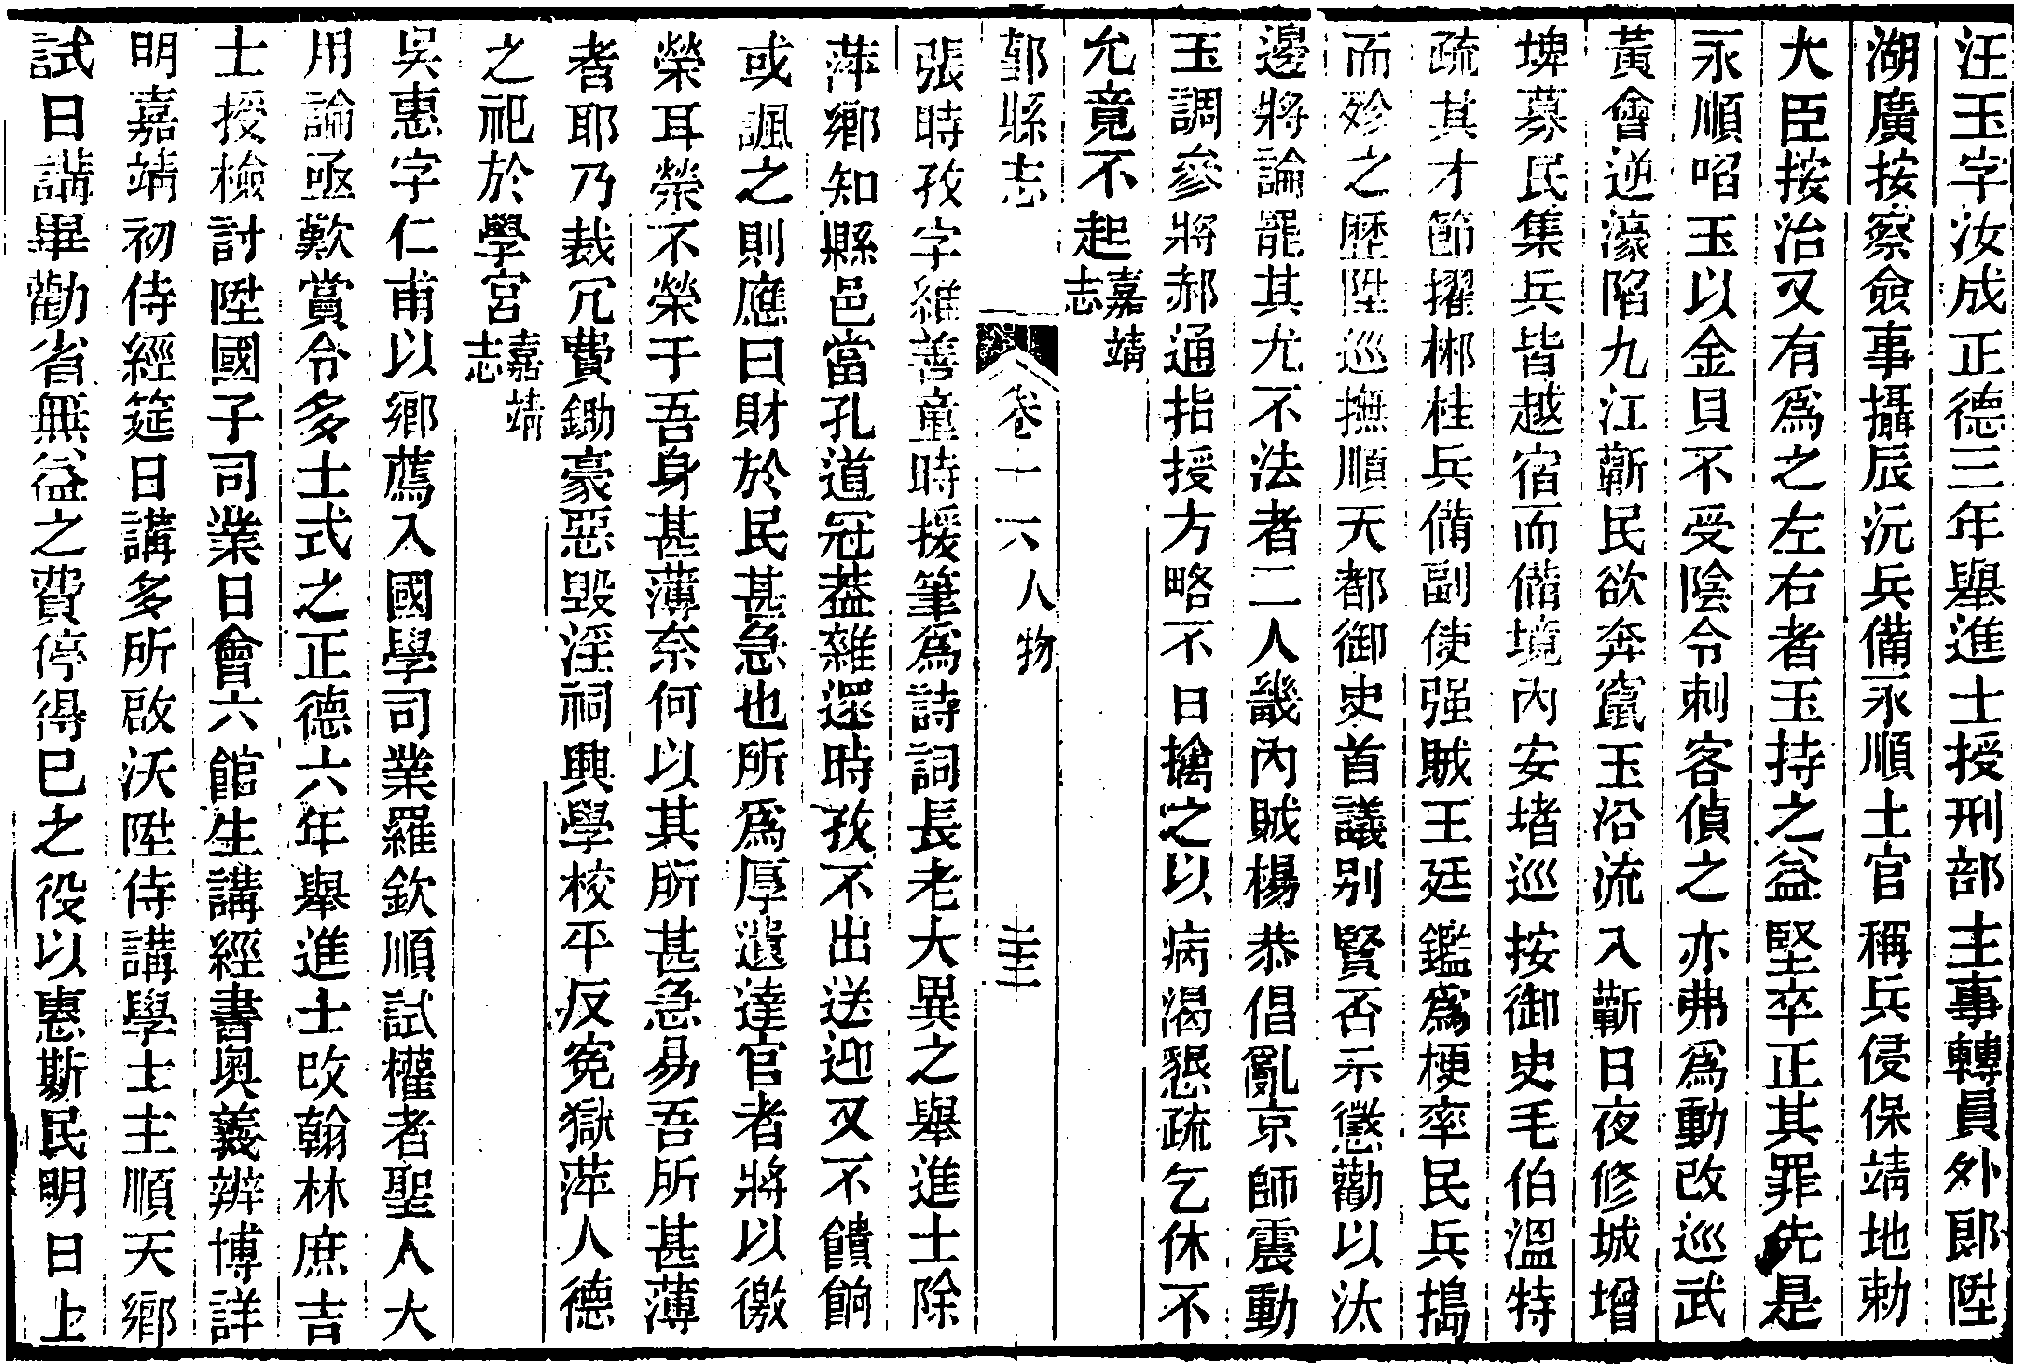 汪玉字汝成正德三年舉進士授刑部主事轉員外郎陞
湖廣按察僉事攝辰沅兵備永順土官稱兵侵保靖地勅
大臣按治又有爲之左右者玉持之益堅卒正其罪先是
永順啗玉以金貝不受陰令刺客偵之亦弗爲動改巡武
黃會逆濠陷九江蘄民欲奔竄玉沿流入蘄日夜修城增
埤募民集兵皆越宿而備境內安堵巡按御史毛伯溫特
疏其才節擢郴桂兵備副使强賊王廷鑑爲梗率民兵搗
而殄之歷陞巡撫順天都御史首議别賢否示懲勸以汰
邊將論罷其尤不法者二人畿內賊楊恭倡亂京師震動
玉調參將郝通指授方略不日擒之以病渴懇疏乞休不
允竟不起嘉靖志
鄞縣志 卷十六 人物 三十三
張時孜字維善童時援筆爲詩詞長老大異之舉進士除
萍鄉知縣邑當孔道冠葢雜遝時孜不出送迎又不饋餉
或諷之則應曰財於民甚急也所爲厚遺達官者將以徼
榮耳榮不榮于吾身甚薄奈何以其所甚急易吾所甚薄
者耶乃裁冗費鋤豪惡毀淫祠興學校平反寃獄萍人德
之祀於學宮嘉靖志
吳惠字仁甫以鄉薦入國學司業羅欽順試權者聖人大
用論亟歎賞令多士式之正德六年舉進士改翰林庶吉
士授檢討陞國子司業日會六館生講經書奧義辨博詳
明嘉靖初侍經筵日講多所啟沃陞侍講學士主順天鄉
試日講畢勸省無益之費停得已之役以惠斯民明日上